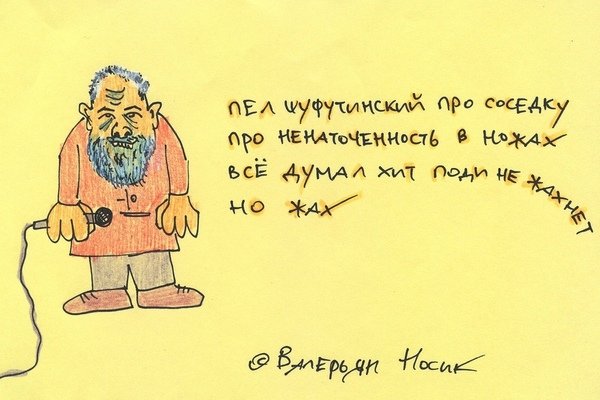 пел шуфутинский про соседку
про ненаточенность в ножах
всё думал хит поди не жахнет
но жах
© Валерьян Носик